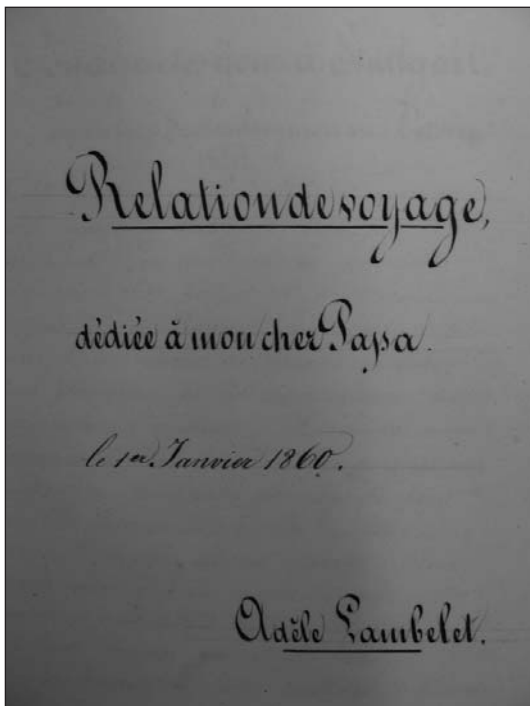 Relation de voyage,
dédiée à mon cher Papa.
le 1er Janvier 1860.
Adèle Lambelet.